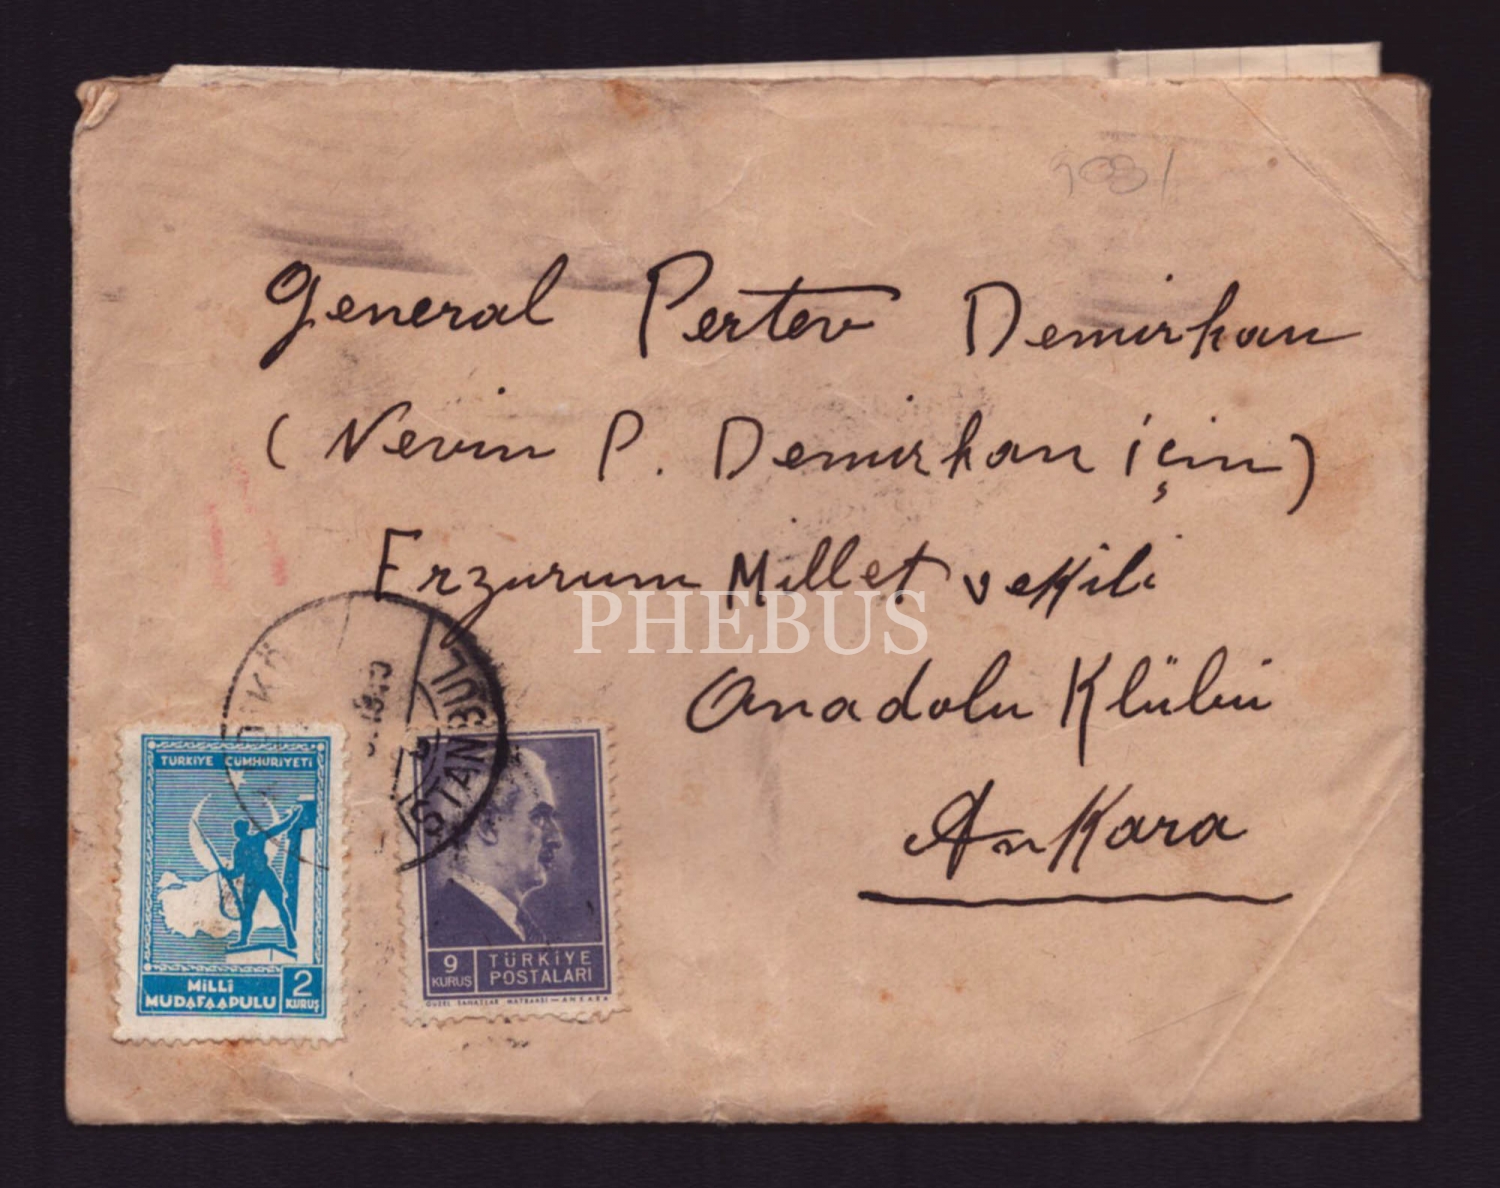 1081
General Pertev Demirhan
(Nevin P. Demirhan için)
Erzurum Millet vekili
PHEBUS
Anadolu Klübü
Ankara
İSTANBUL
TÜRKİYE CÜMHURİYETİ
MİLLİ
MÜDAFAAPULU
2
KURUŞ
9
KURUŞ
TÜRKİYE
POSTALARI
GÜZEL SANATLAR MATBAASI — ANKARA